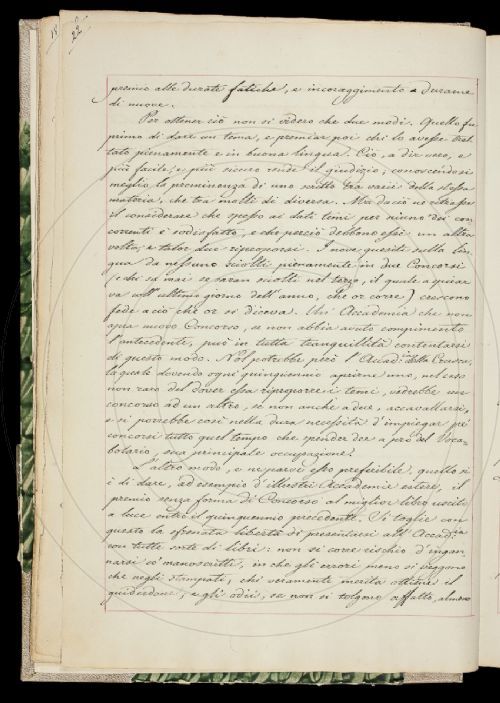 18 22
premio alle durate fatiche, e incoraggimento a durarne
di nuove.
Per ottener ciò non si videro che due modi. Quello fu
primo di dare un tema, e premiar poi chi lo avesse trat
tato pienamente e in buona lingua. Ciò, a dir vero, è
più facile; e più sicuro rende il giudizio; conoscendosi
meglio la preminenza di uno scritto tra varii della stessa
materia, che tra molti di diversa. Ma da ciò ne ritrasse
il considerare che spesso ai dati temi per niuno dei con
correnti è sodisfatto, e che perciò debbono essi un altra
volta, e talor due riproporsi. I nove quesiti sulla lin
gua da nessuno sciolti pienamente in due Concorsi
(e chi sa mai se saran sciolti nel terzo, il quale spirar
va coll'ultimo giorno dell'anno, che or corre) crescono
fede a ciò che or si diceva. Un Accademia che non
apra nuovo Concorso, se non abbia avuto compimento
l'antecedente, può in tutta tranquillità contentarsi
di questo modo. Nol potrebbe però l'Accad.a della Crusca,
la quale dovendo ogni quinquennio aprirne uno, nel caso
non raro del dover essa riproporre i temi, vedrebbe un
concorso ad un altro, se non anche a due, accavallarsi,
e si porrebbe così nella dura necessità d'impiegar pei
concorsi tutto quel tempo che spender dee a prò del Voca=
bolario, sua principale occupazione.
L'altro modo, e ne parve esso preferibile, quello si
è di dare, ad esempio d'illustri Accademie estere, il
premio senza forma di Concorso al miglior libro uscito
a luce entro il quinquennio precedente. Si toglie con
questo la sfrenata libertà di presentarsi all'Accad.a
con tutte sorte di libri: non si corre rischio d'ingan
narsi co' manoscritti, in che gli errori meno si veggono
che negli stampati, chi veramente merita ottiene il
guiderdone; e gli odii, se non si tolgono affatto, almeno